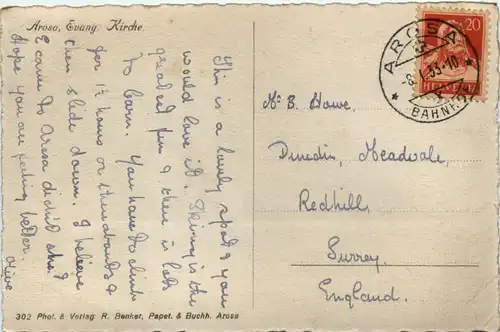 Arosa, Evang. Kirche.
This is a lovely spot & you
would love it. Skiing is the
greatest fun & there is lots
to learn. You have to climb
for 1½ hours or thereabouts &
then slide down. I believe
E came to Arosa didn't she?
Hope you are feeling better.
Olive
302 Phot. & Verlag R. Benker, Papet. & Buchh. Arosa
20
HELVETIA
AROSA
3
-8.I.33-10
BAHNH.
Mr E. Howe,
Dunedin, Meadvale,
Redhill,
Surrey.
England.